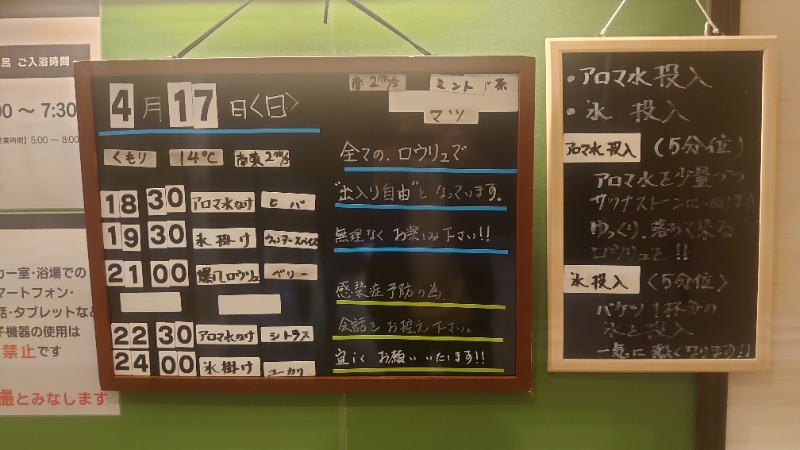 呂 ご入浴時間
00 ～ 7:30
営業時間】5:00 ～ 8:00
カー室・浴場での
マートフォン・
話・タブレットなど
子機器の使用は
禁止です
撮とみなします
4月17日〈日〉
くもり 14℃ 南東2m/s
18 30 アロマ水かけ ヒバ
19 30 氷掛け ウィンタースパイス
21 00 爆風ロウリュ ベリー
22 30 アロマ水かけ シトラス
24 00 氷掛け ユーカリ
南2m/s ミント 茶
マツ
全ての、ロウリュで
"出入り自由"となっています。
無理なくお楽しみ下さい!!
感染症予防の為、
会話をお控え下さい。
宜しくお願いいたします!!
・アロマ水投入
・氷 投入
アロマ水投入 (5分位)
アロマ水を少量づつ
サウナストーンに
ゆっくり、落着て楽ねる
ロウリュを!!
氷投入 (5分位)
バケツ1杯分の
氷を投入
一気に熱くなります!!